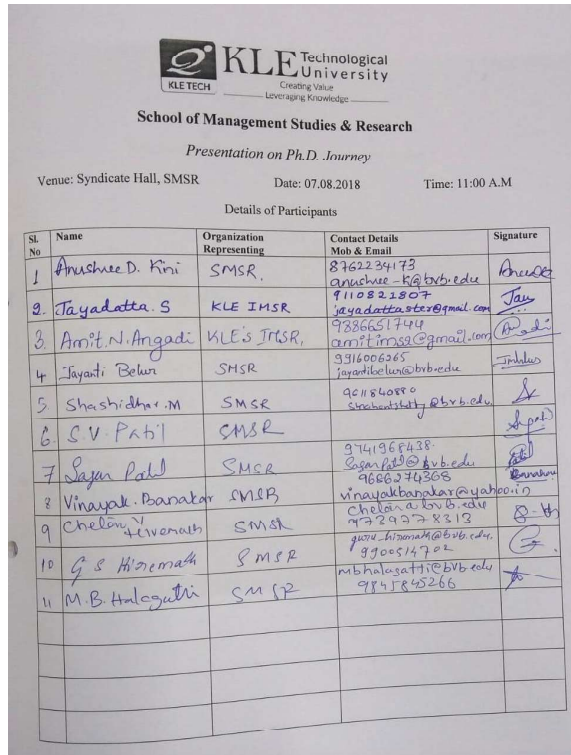 KLE TECH
KLE Technological University
Creating Value
Leveraging Knowledge
School of Management Studies & Research
Presentation on Ph.D. Journey
Venue: Syndicate Hall, SMSR Date: 07.08.2018 Time: 11:00 A.M
Details of Participants
Sl. No Name Organization Representing Contact Details Mob & Email Signature
1 Anushree D. Kini SMSR. 8762234173
anushree-k@bvb.edu
2. Jayadatta. S KLE IMSR 9110821807
jayadattaster@gmail.com Jay
3. Amit. N. Angadi KLE's IMSR, 9886651744
amitimsg@gmail.com
4 Jayanti Belur SMSR 9916006265
jayantibelur@bvb.edu
5. Shashidhar. M SMSR 9611840880
@bvb.edu
6. S.V. Patil SMSR
7 Sagar Patil SMSR 9741968438.
Sagar.Patil@bvb.edu
8 Vinayak. Banakar SMSR 9686274368
vinayakbanakar@yahoo.in
9 SMSR bvb.edu
7739278313
10 G S Hiremath SMSR guru-hiremath@bvb.edu.
9900514702
11 M.B. Halagatti SMSR mbhalagatti@bvb.edu
9845845266